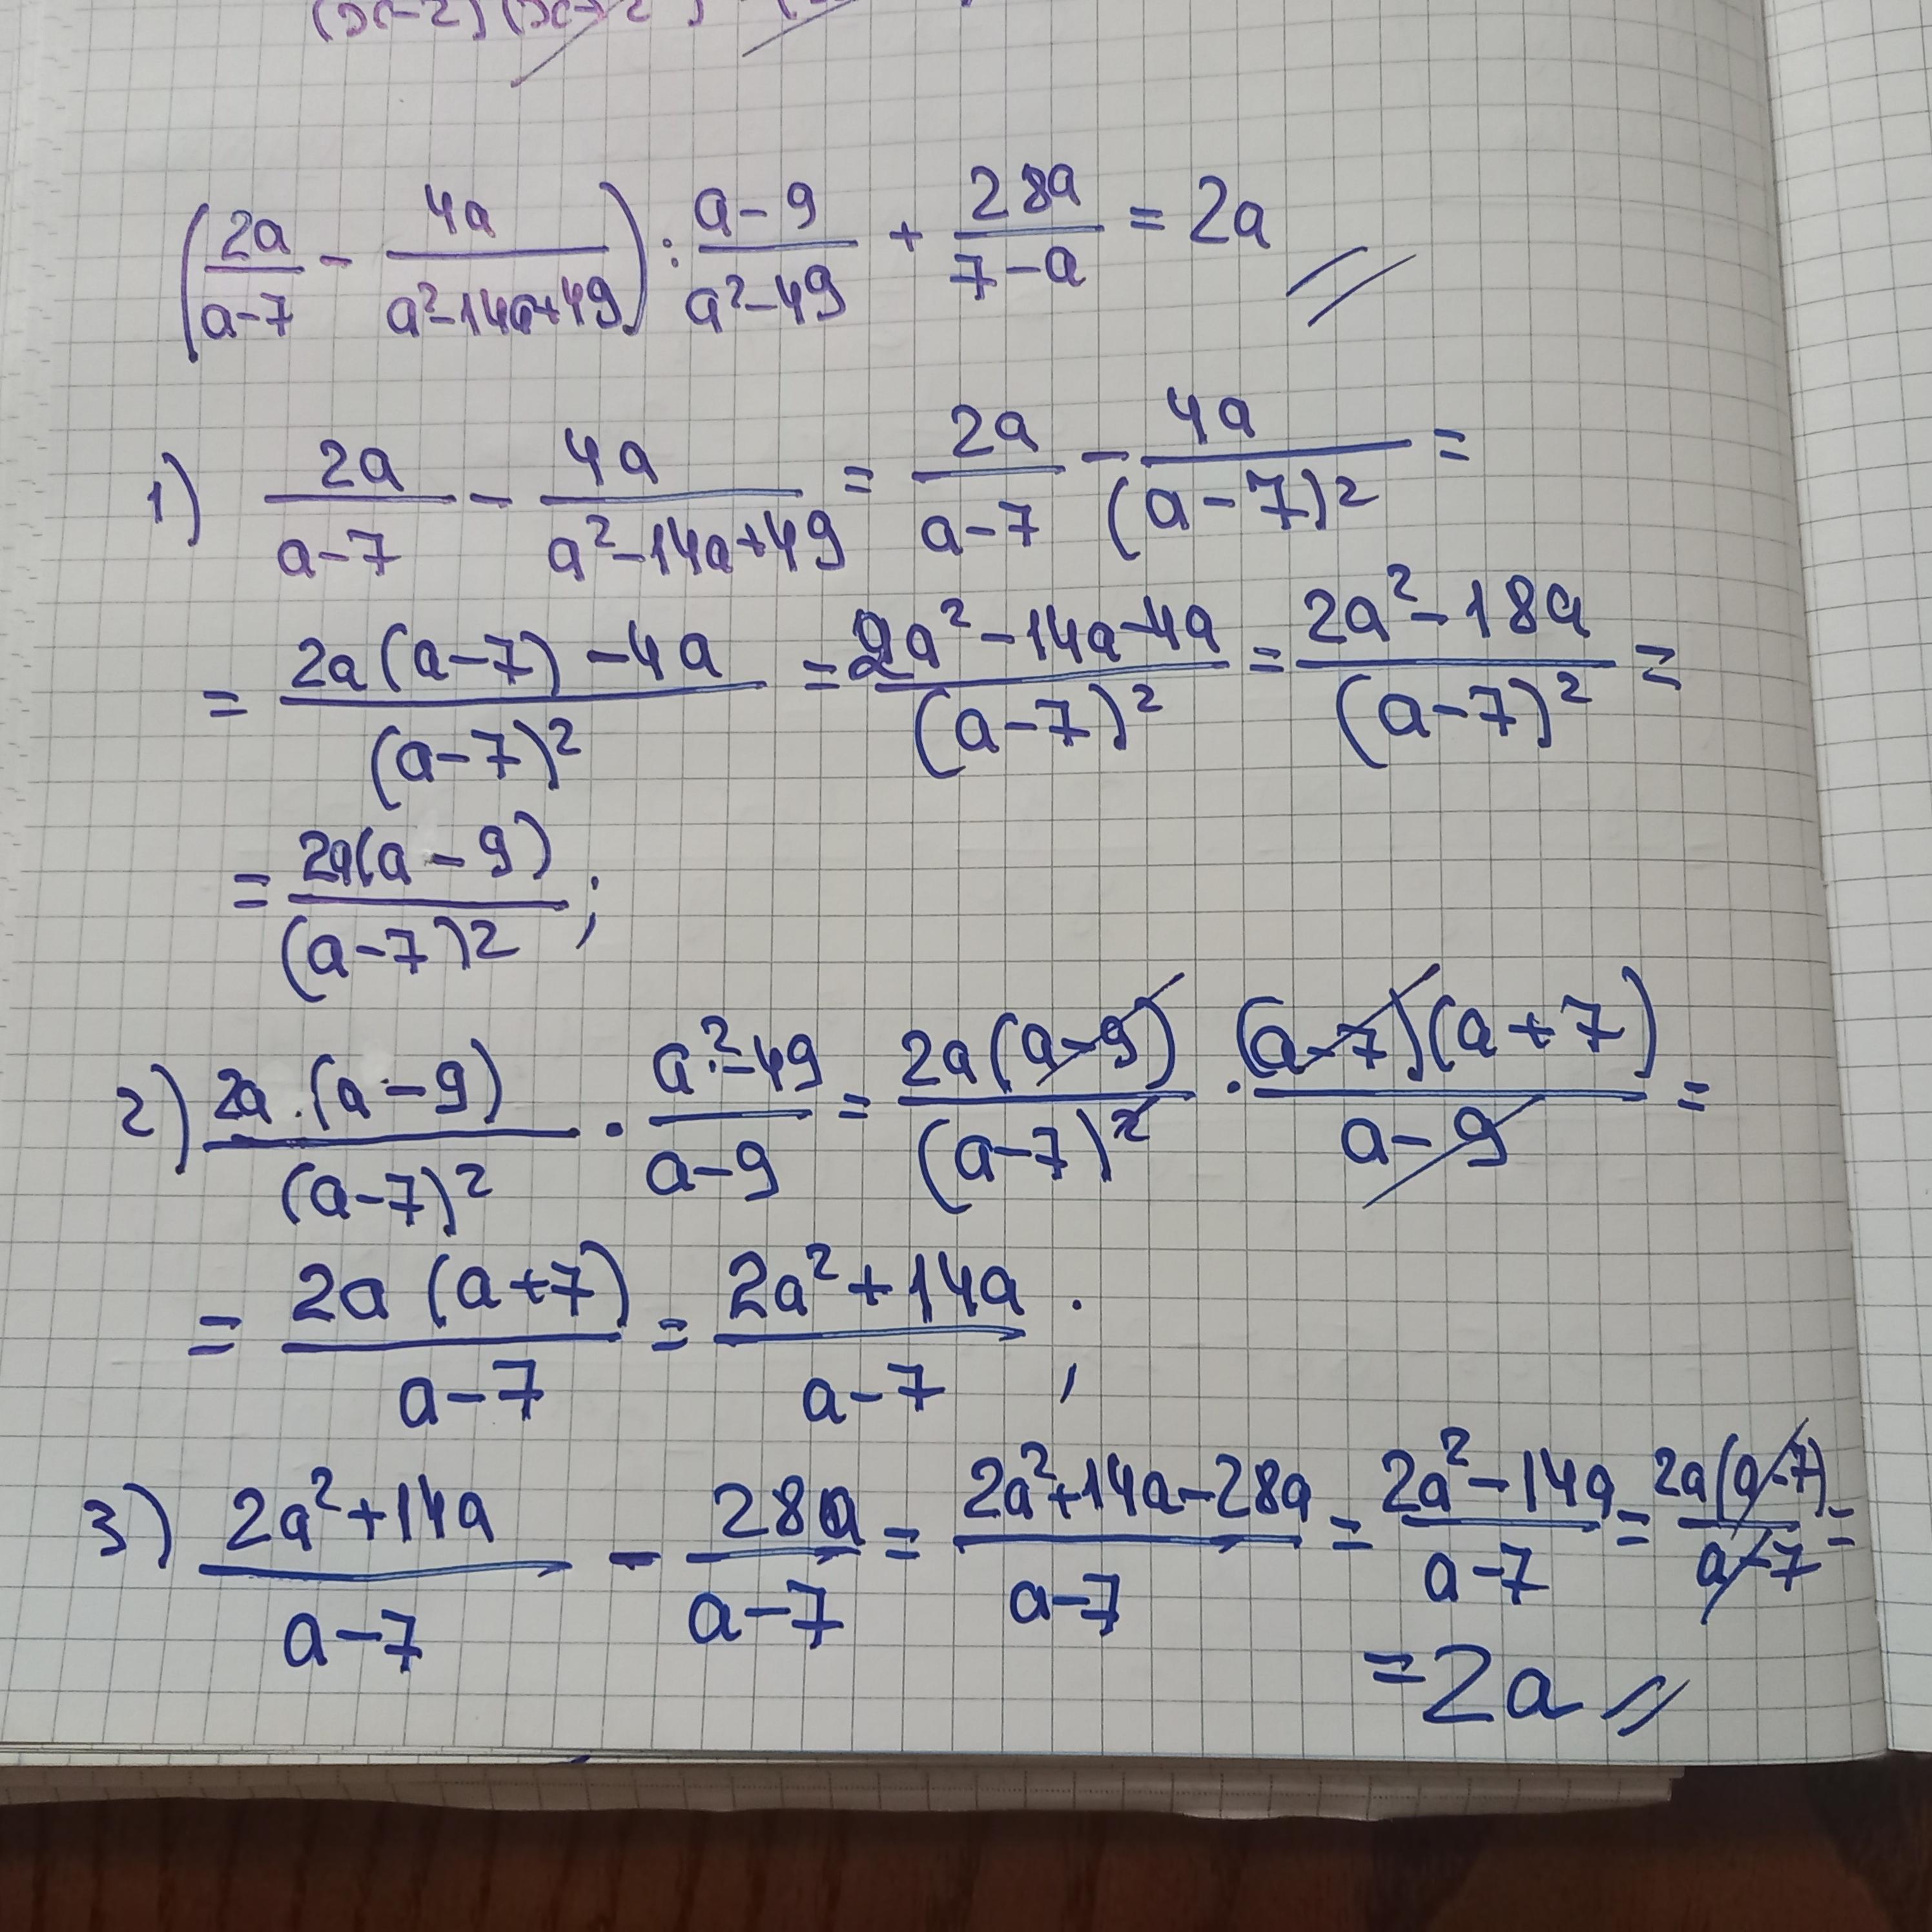 (2a/(a-7) - 4a/(a²-14a+49)) : (a-9)/(a²-49) + 28a/(7-a) = 2a
1) 2a/(a-7) - 4a/(a²-14a+49) = 2a/(a-7) - 4a/(a-7)² =
= (2a(a-7)-4a)/(a-7)² = (2a²-14a-4a)/(a-7)² = (2a²-18a)/(a-7)² =
= 2a(a-9)/(a-7)²;
2) 2a·(a-9)/(a-7)² · (a²-49)/(a-9) = 2a(a-9)/(a-7)² · (a-7)(a+7)/(a-9) =
= 2a(a+7)/(a-7) = (2a²+14a)/(a-7);
3) (2a²+14a)/(a-7) - 28a/(a-7) = (2a²+14a-28a)/(a-7) = (2a²-14a)/(a-7) = 2a(a-7)/(a-7) =
= 2a